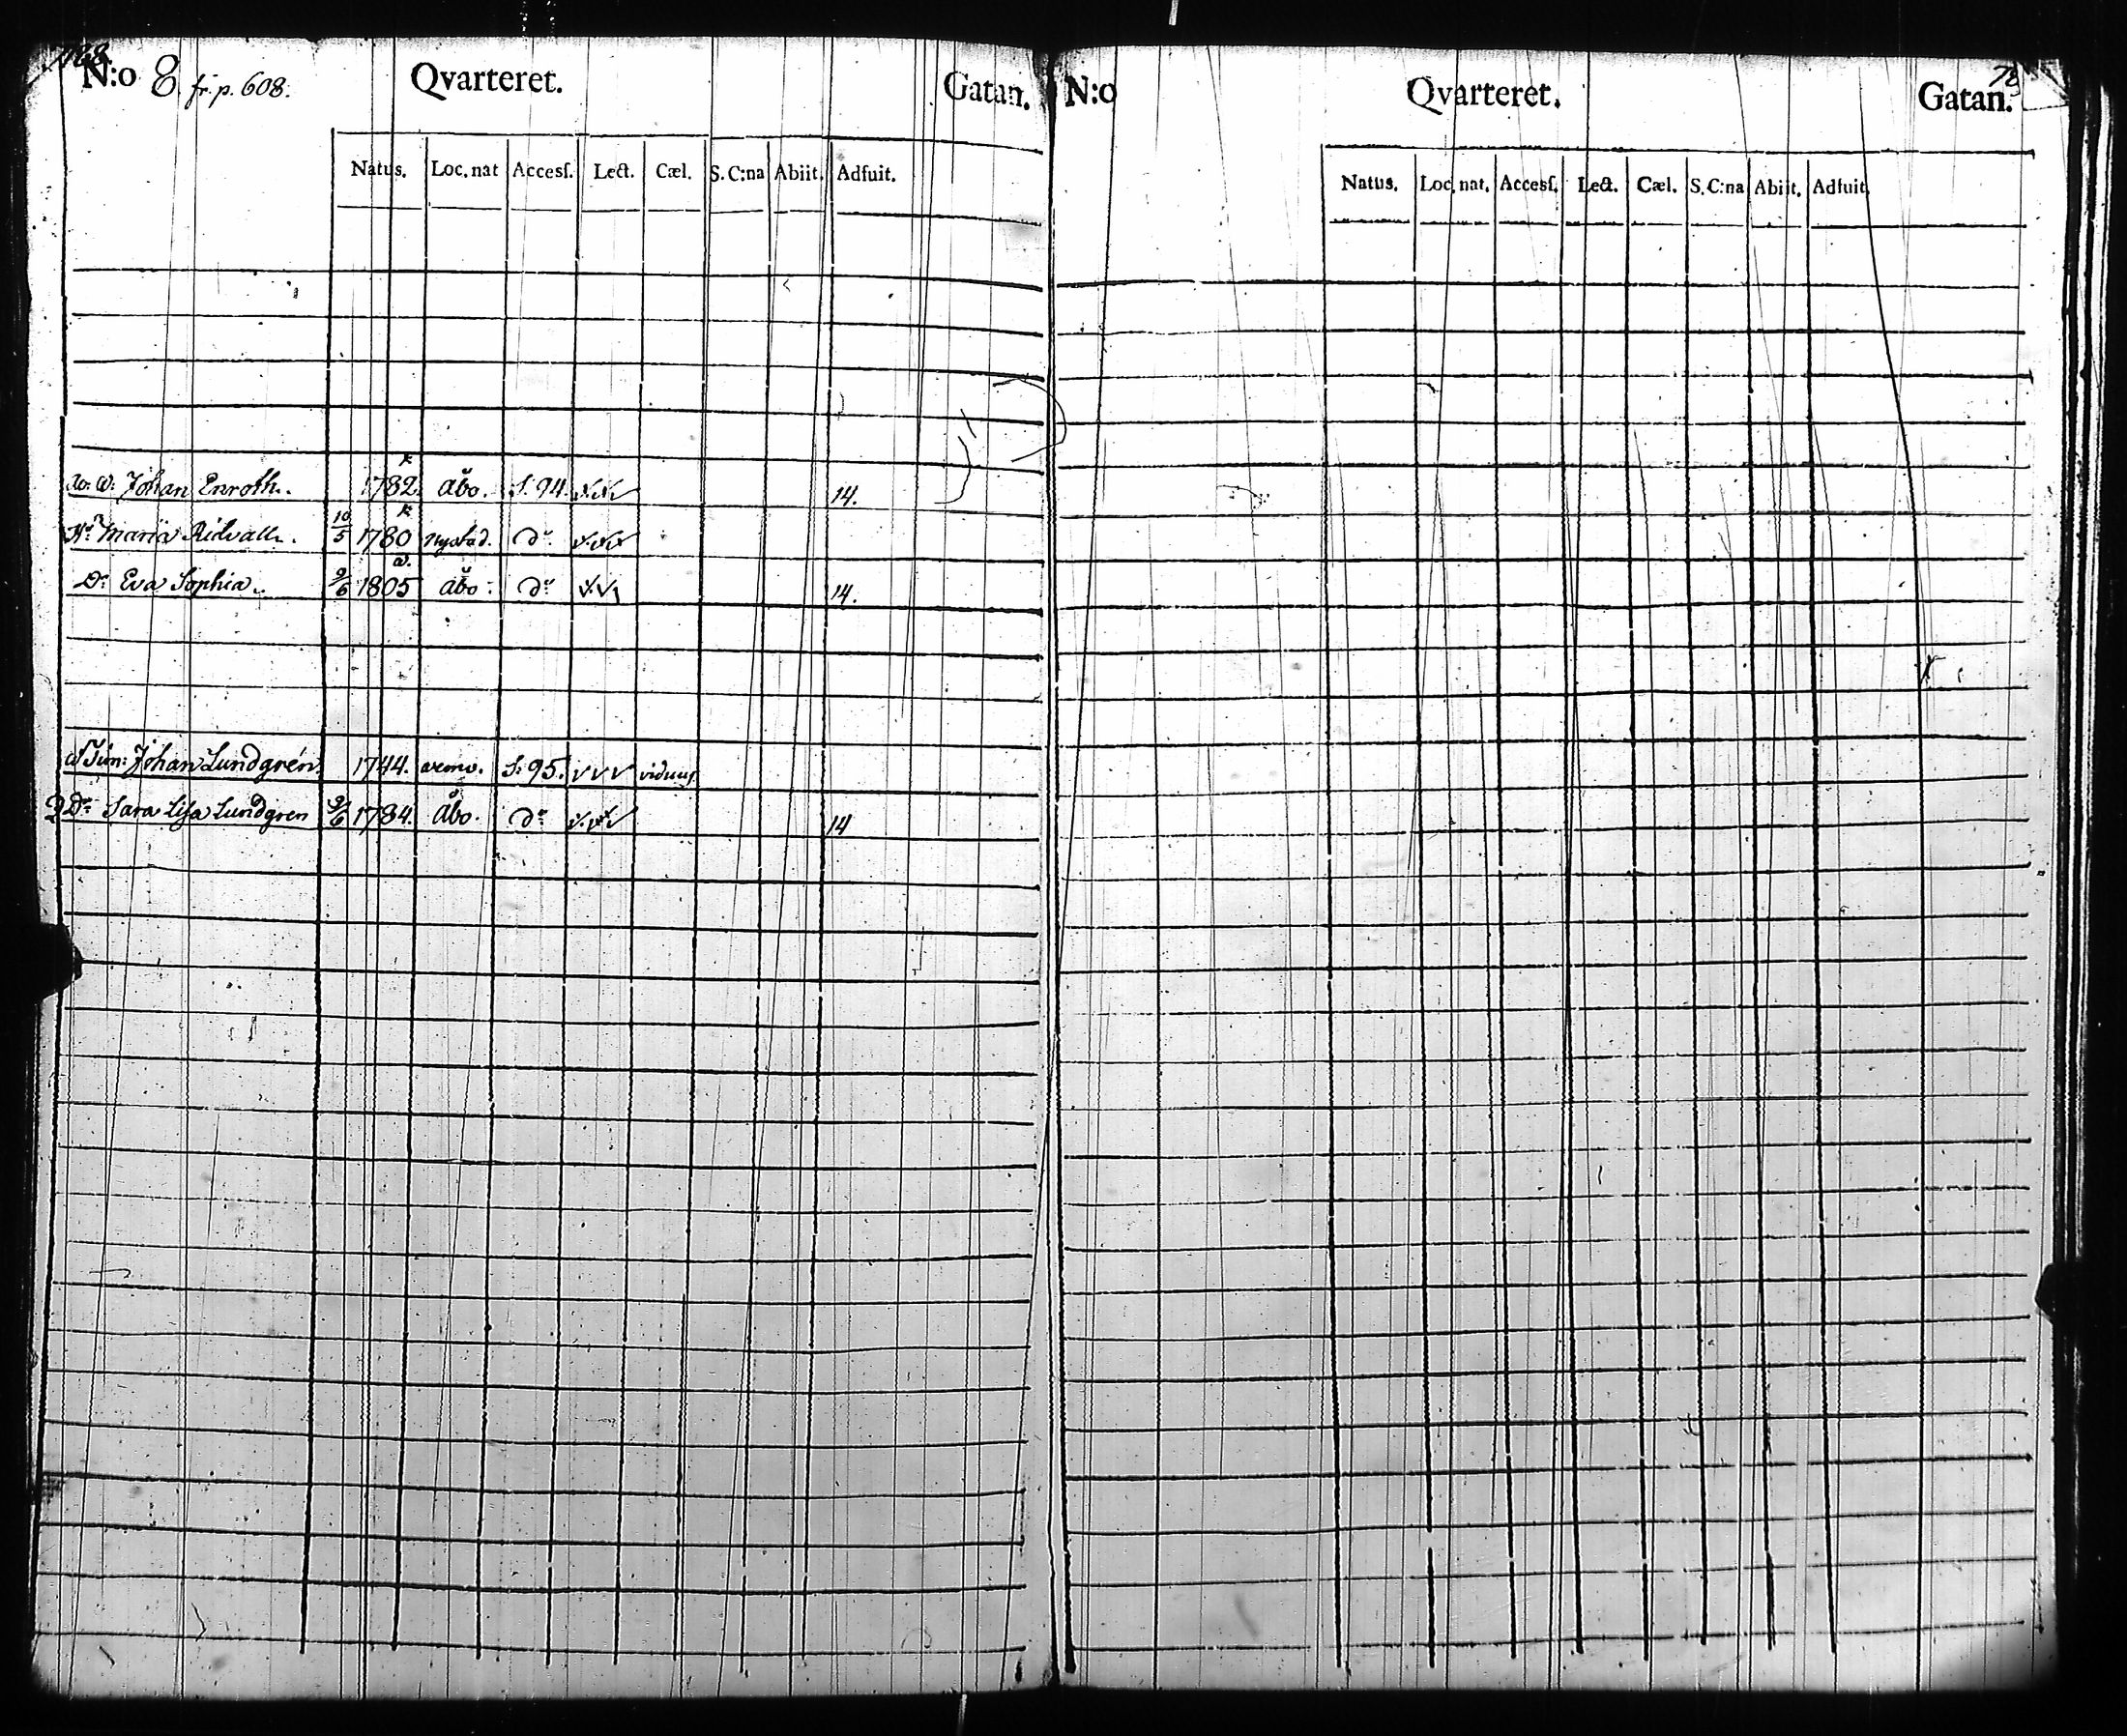 N:o 8. fr. p. 608. Qvarteret. Gatan.
Natus. Loc. nat Access. Lect. Cæl. S. C:na Abiit. Adfuit.
Johan Enroth. 1782. Åbo. f. 94. 14.
Maria Ridvall. 10/5 1780 Nystad. Do
Dr Eva Sophia. 9/6 1805 Åbo. Do 14.
Johan Lundgren. 1744. f. 95. viduus
Dr Sara Lisa Lundgren 1784. Åbo. Do 14
N:o Qvarteret. Gatan.
Natus. Loc. nat. Access. Lect. Cæl. S. C:na Abiit. Adfuit.